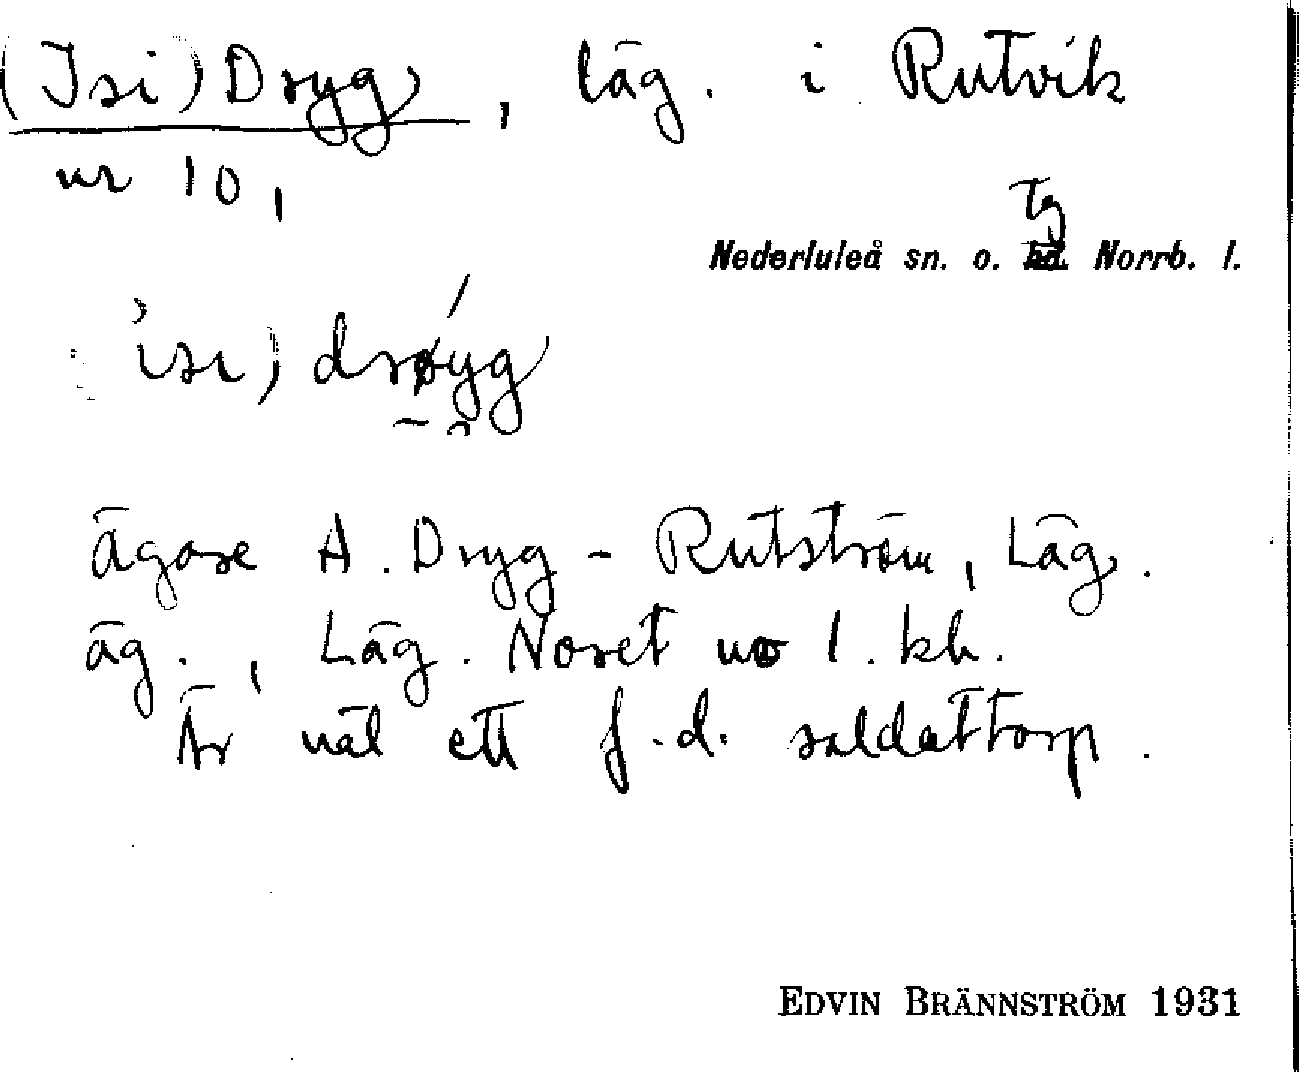 (Isi) Dryg, läg. i Rutvik
nr 10,
tg
Nederluleå sn. o. hd. Norrb. l.
isi) drøyg
ägare A. Dryg - Rutström, Läg.
äg., Läg. Noret no 1. kh.
Är väl ett f.d. soldattorp.
EDVIN BRÄNNSTRÖM 1931